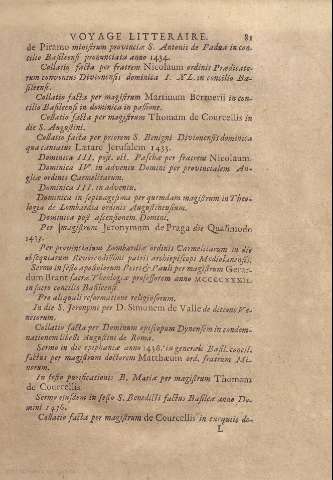 VOYAGE LITTERAIRE. 81
de Pirano ministrum provinciæ S. Antonii de Padua in con-
cilio Basileensi pronuntiata anno 1434.
Collatio facta per fratrem Nicolaum ordinis Prædicato-
rum conventus Divionensis dominica I. XL. in concilio Ba-
sileensi.
Collatio facta per magistrum Martinum Berruerii in con-
cilio Basileensi in dominica in passione.
Collatio facta per magistrum Thomam de Courcellis in
die S. Augustini.
Collatio facta per priorem S. Benigni Divionensis dominica
qua cantatur Lætare Jerusalem 1433.
Dominica III. post. oct. Paschæ per fratrem Nicolaum.
Dominica IV. in adventu Domini per provincialem An-
gliæ ordinis Carmelitarum.
Dominica III. in adventu.
Dominica in septuagesima per quemdam magistrum in Theo-
logia de Lombardia ordinis Augustinensium.
Dominica post ascensionem Domini.
Per magistrum Jeronymum de Praga die Quasimodo
1433.
Per provincialem Lombardiæ ordinis Carmelitarum in die
obsequiarum Reverendissimi patris archiepiscopi Mediolanensis.
Sermo in festo apostolorum Petri & Pauli per magistrum Gerar-
dum Bram sacræ Theologiæ professorem anno MCCCCXXXII.
in sacro concilio Basileensi.
Pro aliquali reformatione religiosorum.
In die S. Jeronymi per D. Simonem de Valle de ditione Ve-
netorum.
Collatio facta per Dominum episcopum Dynensem in condem-
nationem libelli Augustini de Roma.
Sermo in die epiphaniæ anno 1438. in generali Basil. concil.
factus per magistrum doctorem Matthæum ord. fratrum Mi-
norum.
In festo purificationis B. Mariæ per magistrum Thomam
de Courcellis.
Sermo ejusdem in festo S. Benedicti factus Basileæ anno Do-
mini 1436.
Collatio facta per magistrum de Courcellis in exequiis do-
L